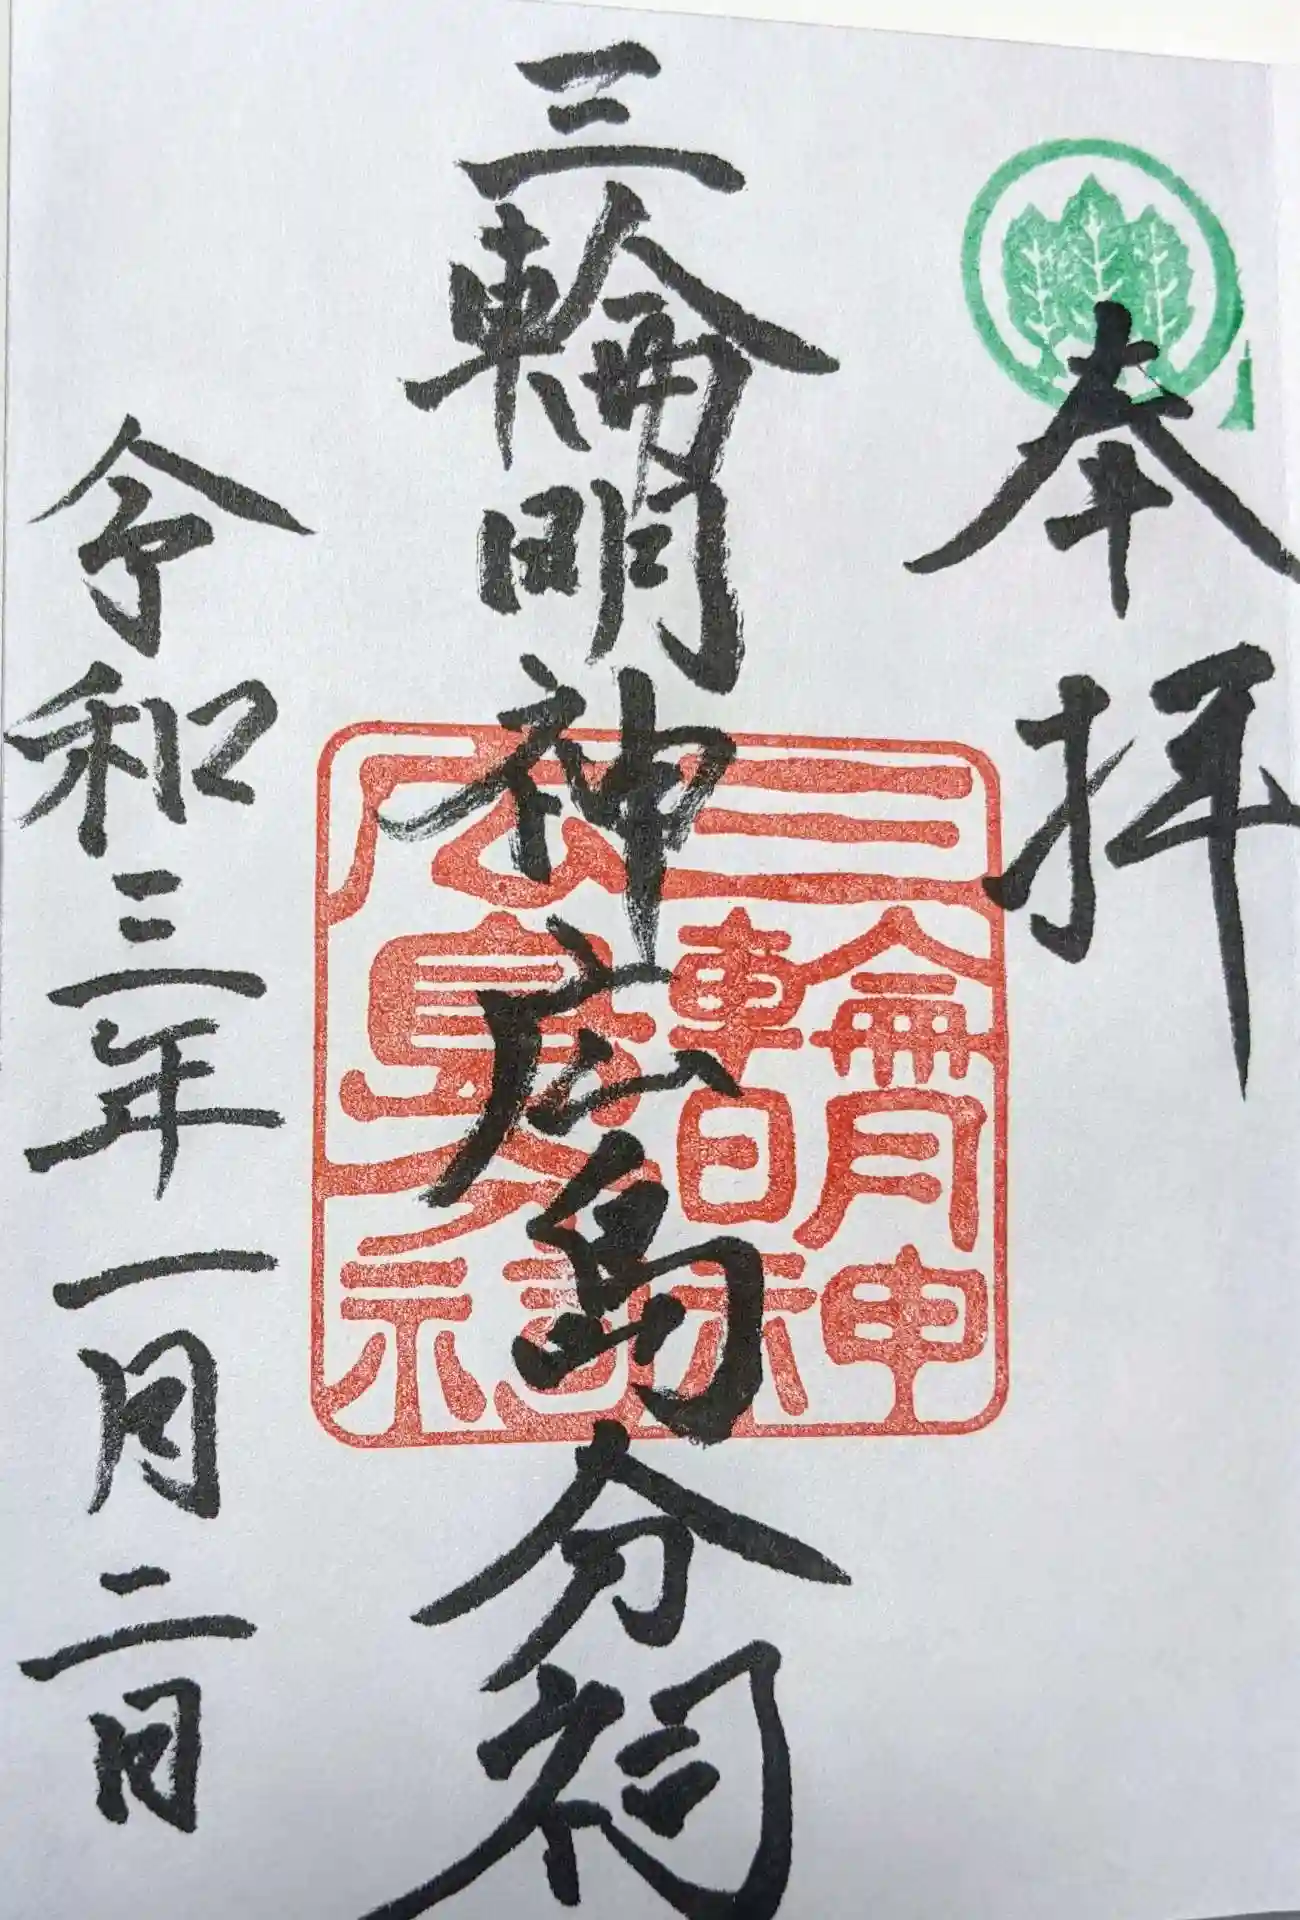 奉拝
三輪明神広島分祠
三輪明神
広島分祠
令和三年一月二日